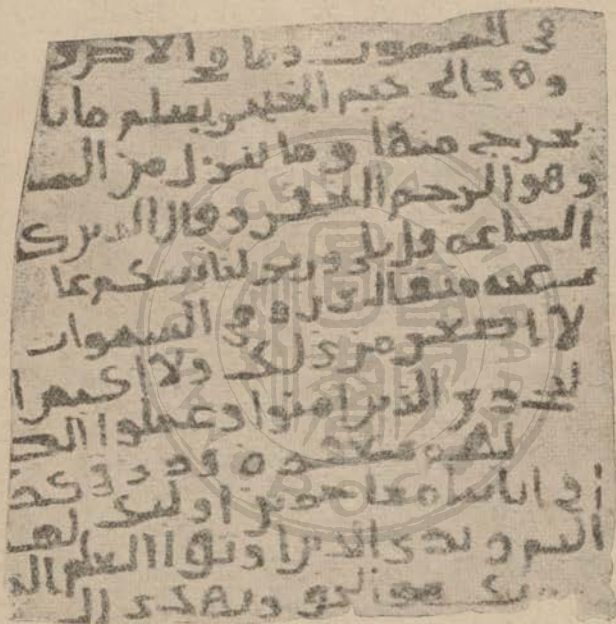 في السموت وما في الارض
وهو الحكيم الخبير يعلم ما يلـ
يخرج منها وما ينزل من السما
وهو الرحيم الغفور وقال الذين كـ
الساعه قل بلى وربي لتاتينكم عا
عنه مثقال ذره في السموات
لا اصغر من ذلك ولا اكبر ا
ليجزي الذين امنوا وعملوا الصـ
لهم مغفره ورزق كر
في اياتنا معاجزين اوليك لهم
اليم ويرى الذين اوتوا العلم الذ
ربك هو الحق ويهدي الى
CENTRAL LIBRARY